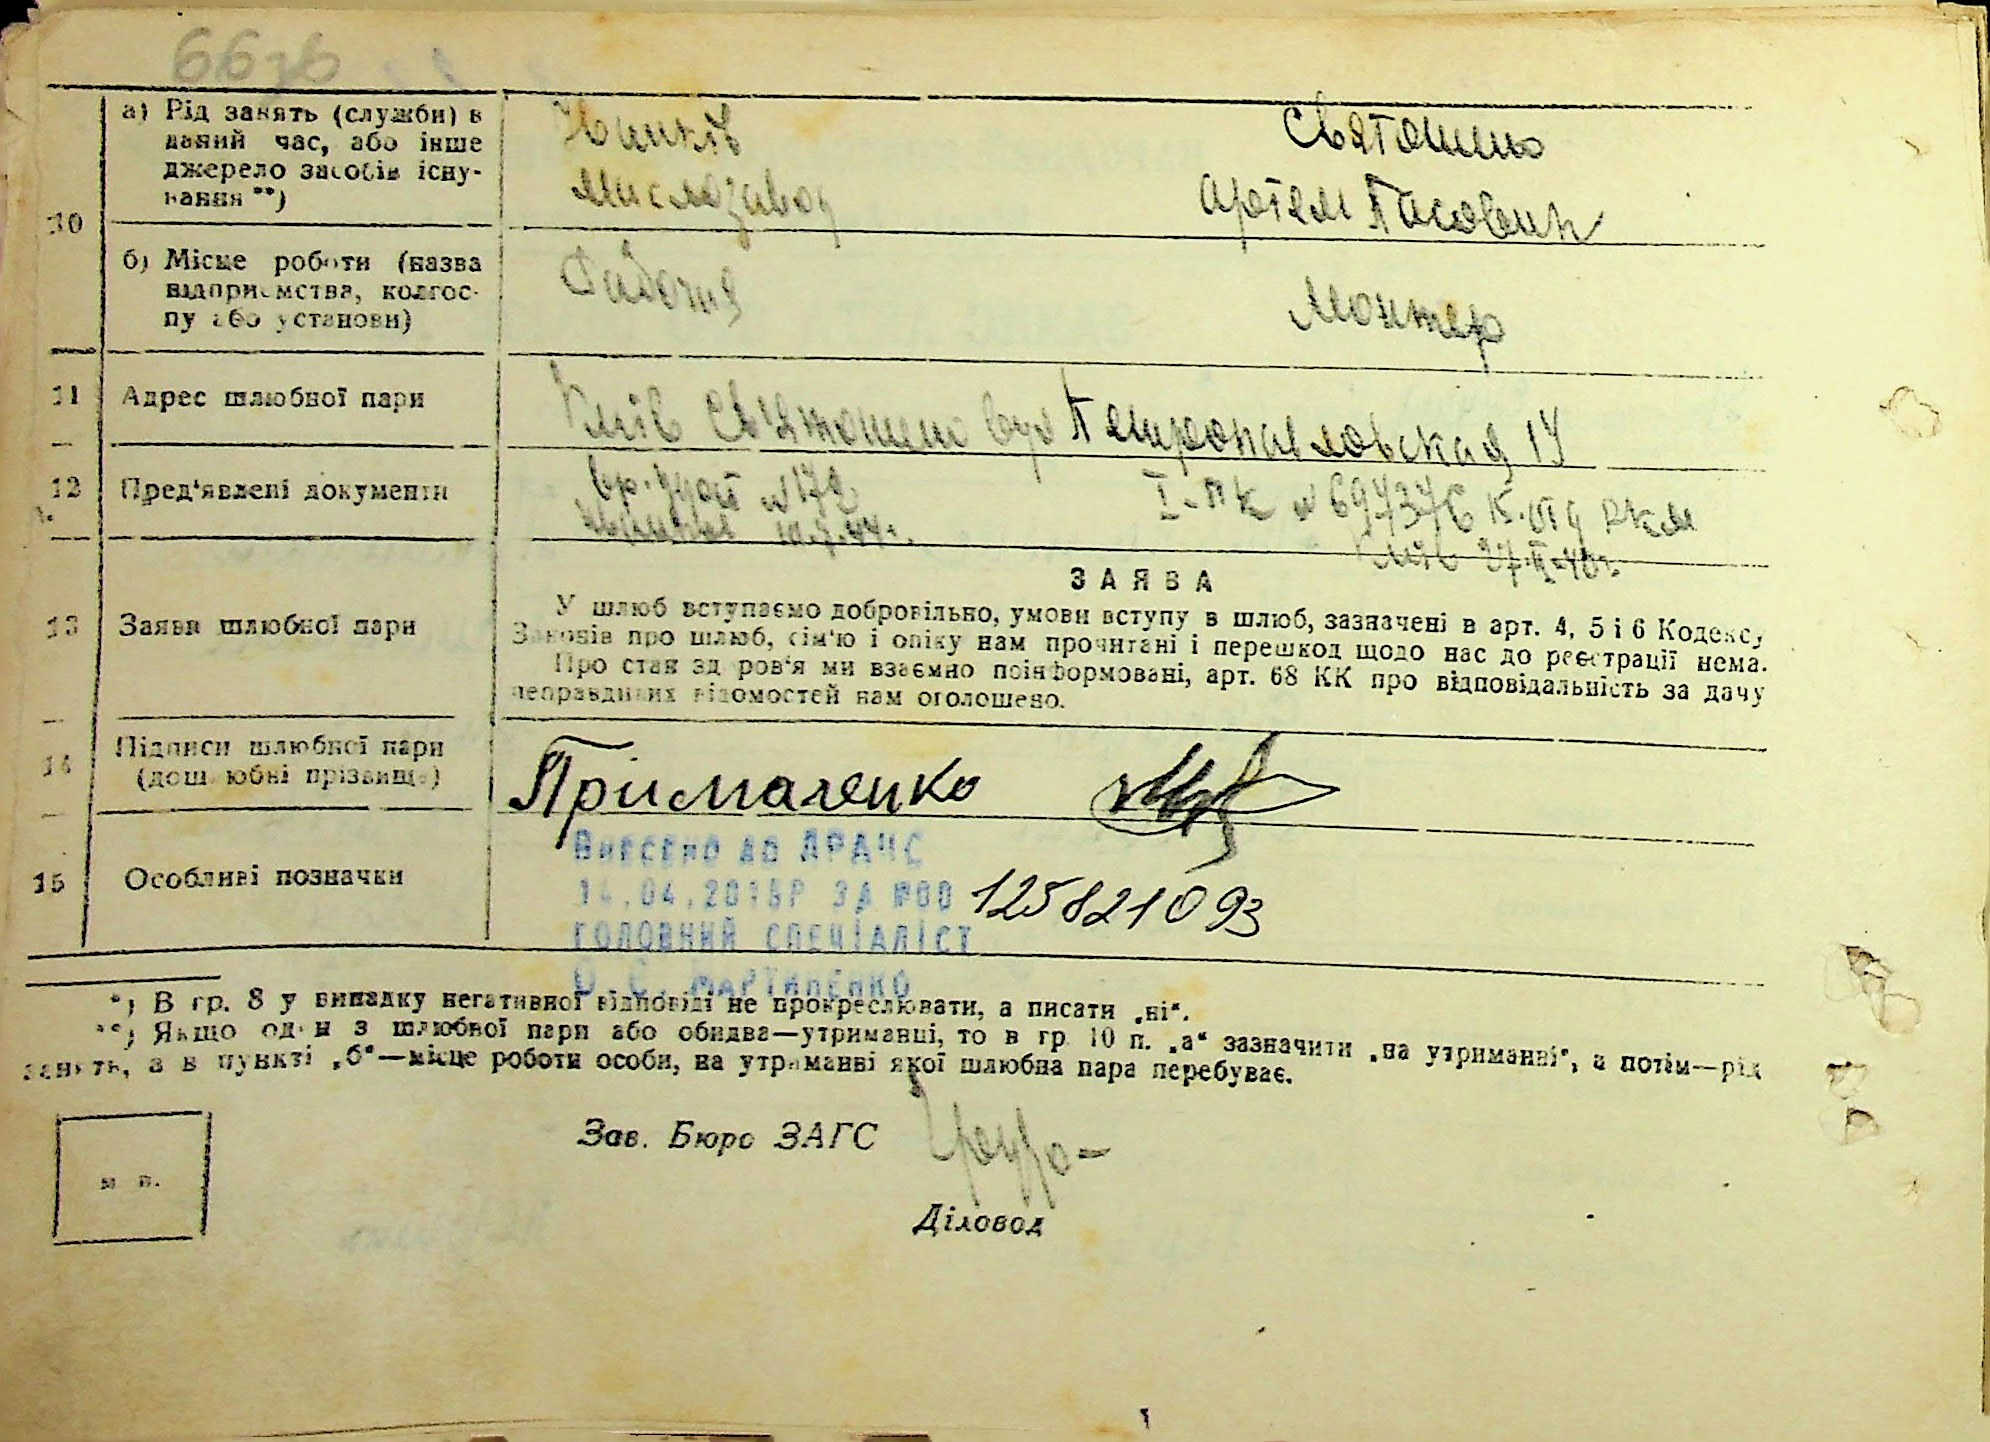 10
а) Рід занять (служби) в
даний час, або інше
джерело засобів існу-
вання **)
Іванків
Маслозавод
Святошино
Артем
б) Місце роботи (назва
відприємства, колгос-
пу або установи)
Рабочия
Монтер
11
Адрес шлюбної пари
Київ Святошино вул Петропавловская 14
12
Пред'явлені документи
вр. удост №172
10.7.44г.
I-ПК № 697376 РКМ
Київ
13
Заяви шлюбної пари
ЗАЯВА
У шлюб вступаємо добровільно, умови вступу в шлюб, зазначені в арт. 4, 5 і 6 Кодексу
Законів про шлюб, сім'ю і опіку нам прочитані і перешкод щодо нас до реєстрації нема.
Про стан здоров'я ми взаємно поінформовані, арт. 68 КК про відповідальність за дачу
неправдивих відомостей нам оголошено.
14
Підписи шлюбної пари
(дошлюбні прізвища)
Прималенко
15
Особливі позначки
Внесено до ДРАЦС
14.04.2015Р ЗА №00 125821093
ГОЛОВНИЙ СПЕЦІАЛІСТ
О. С. МАРТИНЕНКО
*) В гр. 8 у випадку негативної відповіді не прокреслювати, а писати „ні“.
**) Якщо один з шлюбної пари або обидва—утриманці, то в гр. 10 п. „а“ зазначити „на утриманні“, а потім—рід
занять, а в пункті „б“—місце роботи особи, на утриманні якої шлюбна пара перебуває.
Зав. Бюро ЗАГС
м п.
Діловод